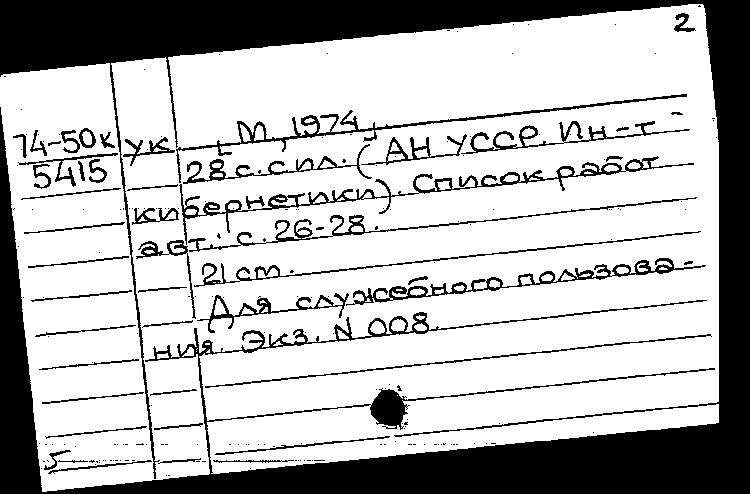 2
74-50к ук [М., 1974].
5415 28 с. с ил. (АН УССР. Ин-т
кибернетики). Список работ
авт.: с. 26-28.
21 cm.
Для служебного пользова-
ния. Экз. N 008.
5